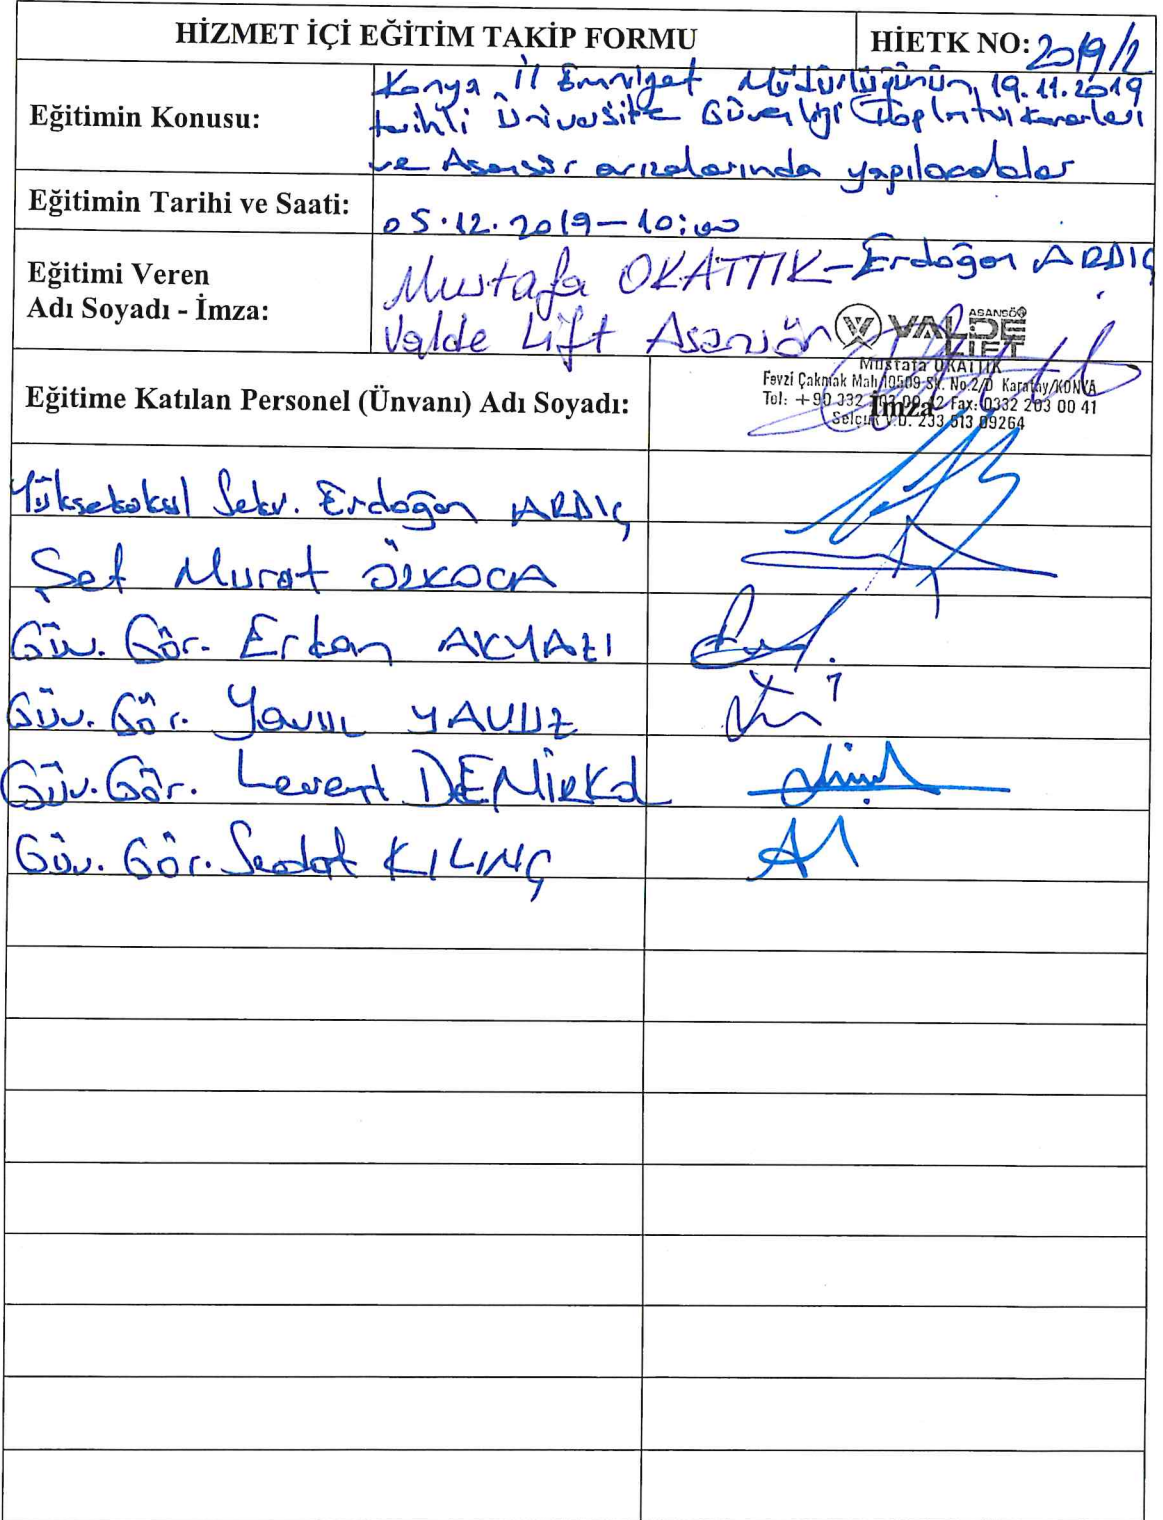 HİZMET İÇİ EĞİTİM TAKİP FORMU
HİETK NO: 2019/2
Eğitimin Konusu:
Konya İl Emniyet Müdürlüğünün 19.11.2019
tarihli Üniversite Güvenliği Toplantısı kararları
ve Asansör arızalarında yapılacaklar
Eğitimin Tarihi ve Saati:
05.12.2019-10:00
Eğitimi Veren
Adı Soyadı - İmza:
Mustafa OKATTIK-Erdoğan ARDIÇ
Valde Lift Asansör
ASANSÖR
VALDE
LIFT
Mustafa OKATTIK
Fevzi Çakmak Mah. 10509 Sk. No.2/D Karatay/KONYA
Tel: +90 332 203 00 42 Fax: 0332 203 00 41
Selçuk V.D. 233 513 09264
Eğitime Katılan Personel (Ünvanı) Adı Soyadı:
İmza
Yüksekokul Sekr. Erdoğan ARDIÇ
Şef Murat ÖZKOCA
Güv. Gör. Erkan AKYAZI
Güv. Gör. Yavuz YAVUZ
Güv. Gör. Levent DEMİRKOL
Güv. Gör. Sedat KILINÇ